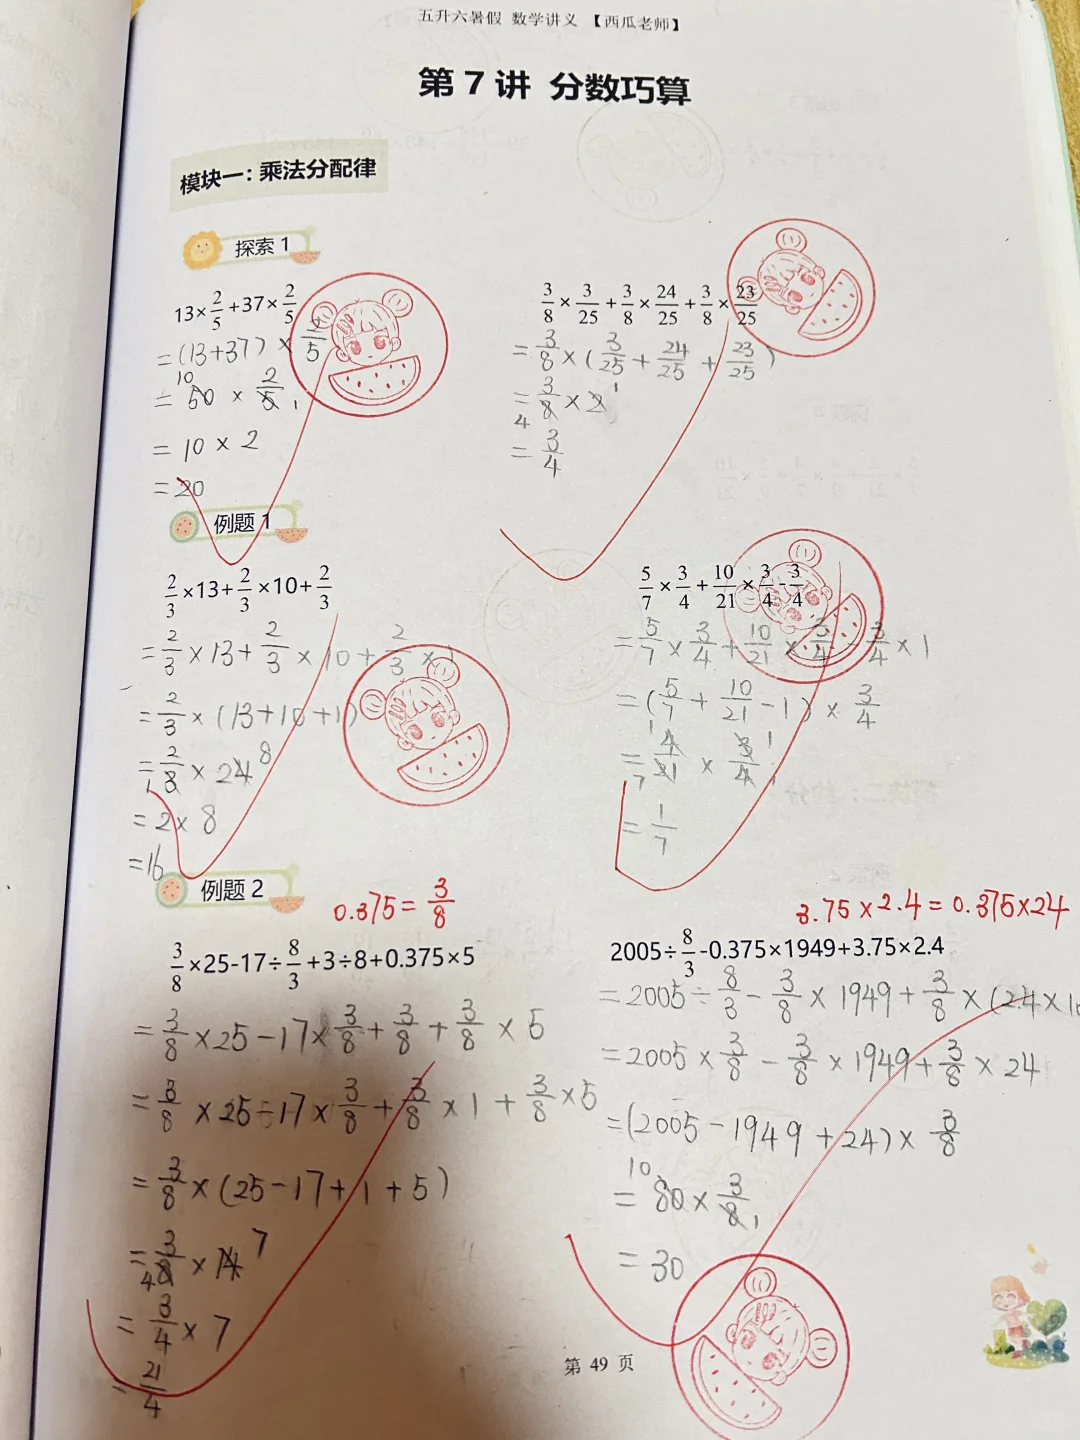 五升六暑假 数学讲义 【西瓜老师】
第 7 讲 分数巧算
模块一：乘法分配律
探索 1
13×2/5+37×2/5
=(13+37)×2/5
=50×2/5 10 1
=10×2
=20
3/8×3/25+3/8×24/25+3/8×23/25
=3/8×(3/25+24/25+23/25)
=3/8×2 4 1
=3/4
例题 1
2/3×13+2/3×10+2/3
=2/3×13+2/3×10+2/3×1
=2/3×(13+10+1)
=2/3×24 1 8
=2×8
=16
5/7×3/4+10/21×3/4-3/4
=5/7×3/4+10/21×3/4-3/4×1
=(5/7+10/21-1)×3/4
=4/21×3/4 1 7 1 1
=1/7
例题 2
0.375=3/8
3/8×25-17÷8/3+3÷8+0.375×5
=3/8×25-17×3/8+3/8+3/8×5
=3/8×25-17×3/8+3/8×1+3/8×5
=3/8×(25-17+1+5)
=3/8×14 4 7
=3/4×7
=21/4
3.75×2.4=0.375×24
2005÷8/3-0.375×1949+3.75×2.4
=2005÷8/3-3/8×1949+3/8×(2.4×10
=2005×3/8-3/8×1949+3/8×24
=(2005-1949+24)×3/8
=80×3/8 10 1
=30
第 49 页